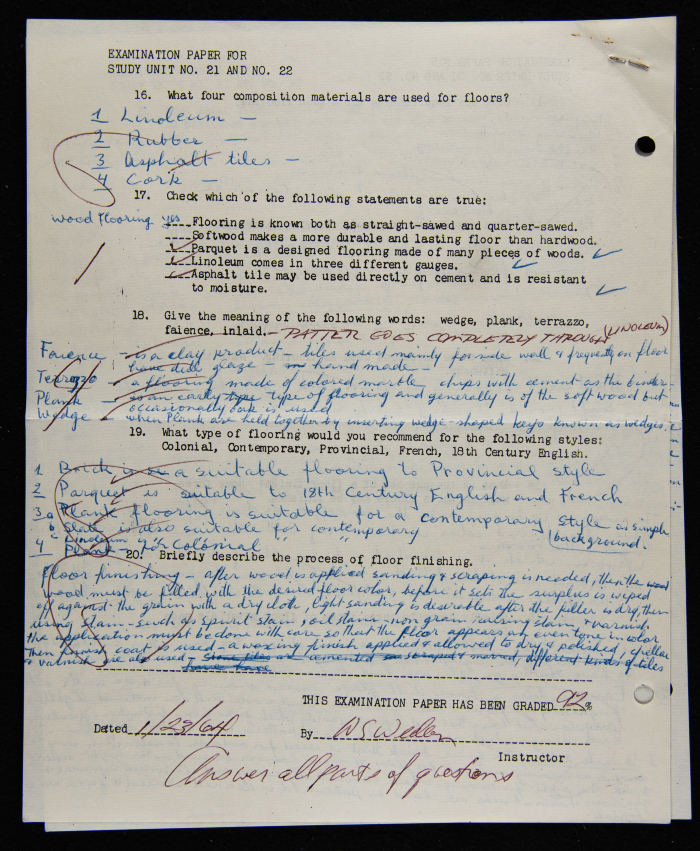 EXAMINATION PAPER FOR
STUDY UNIT NO. 21 AND NO. 22
16. What four composition materials are used for floors?
1 Linoleum —
2 Rubber —
3 Asphalt tiles —
4 Cork —
17. Check which of the following statements are true:
wood flooring yes Flooring is known both as straight-sawed and quarter-sawed.
Softwood makes a more durable and lasting floor than hardwood.
✓ Parquet is a designed flooring made of many pieces of woods. ✓
✓ Linoleum comes in three different gauges. ✓
✓ Asphalt tile may be used directly on cement and is resistant
to moisture. ✓
18. Give the meaning of the following words: wedge, plank, terrazzo,
faience, inlaid. — PATTER GOES COMPLETELY THROUGH (LINOLEUM)
Faience — is a clay product — tiles used mainly for side wall & frequently on floor
have dull glaze — hand made —
Terrazzo — a flooring made of colored marble chips with cement as the binder
Plank — is an early type of flooring and generally is of the soft wood but
occasionally oak is used
Wedge — when Plank are held together by inserting wedge-shaped keys known as wedges.
19. What type of flooring would you recommend for the following styles:
Colonial, Contemporary, Provincial, French, 18th Century English.
1 Brick is a suitable flooring to Provincial style
2 Parquet is suitable to 18th Century English and French
3 a Plank flooring is suitable for a contemporary style as simple
b Slate is also suitable for contemporary background.
c Linoleum " " " "
4 Plank — for colonial
20. Briefly describe the process of floor finishing.
Floor finishing — after wood is applied sanding & scraping is needed, then the wood
wood must be filled with the desired floor color, before it sets the surplus is wiped
off against the grain with a dry cloth, light sanding is desirable after the filler is dry, then
using stain — such as spirit stain, oil stain, non grain raising stain, & varnish.
the application must be done with care so that the floor appears an even tone in color
Then finish coat is used — a waxing finish applied & allowed to dry & polished, shellac
or varnish are also used — Stone tiles are cemented scraped & marred, different kinds of tiles
have have
THIS EXAMINATION PAPER HAS BEEN GRADED 92%
Dated 1/23/64 By
Instructor
Answer all parts of questions